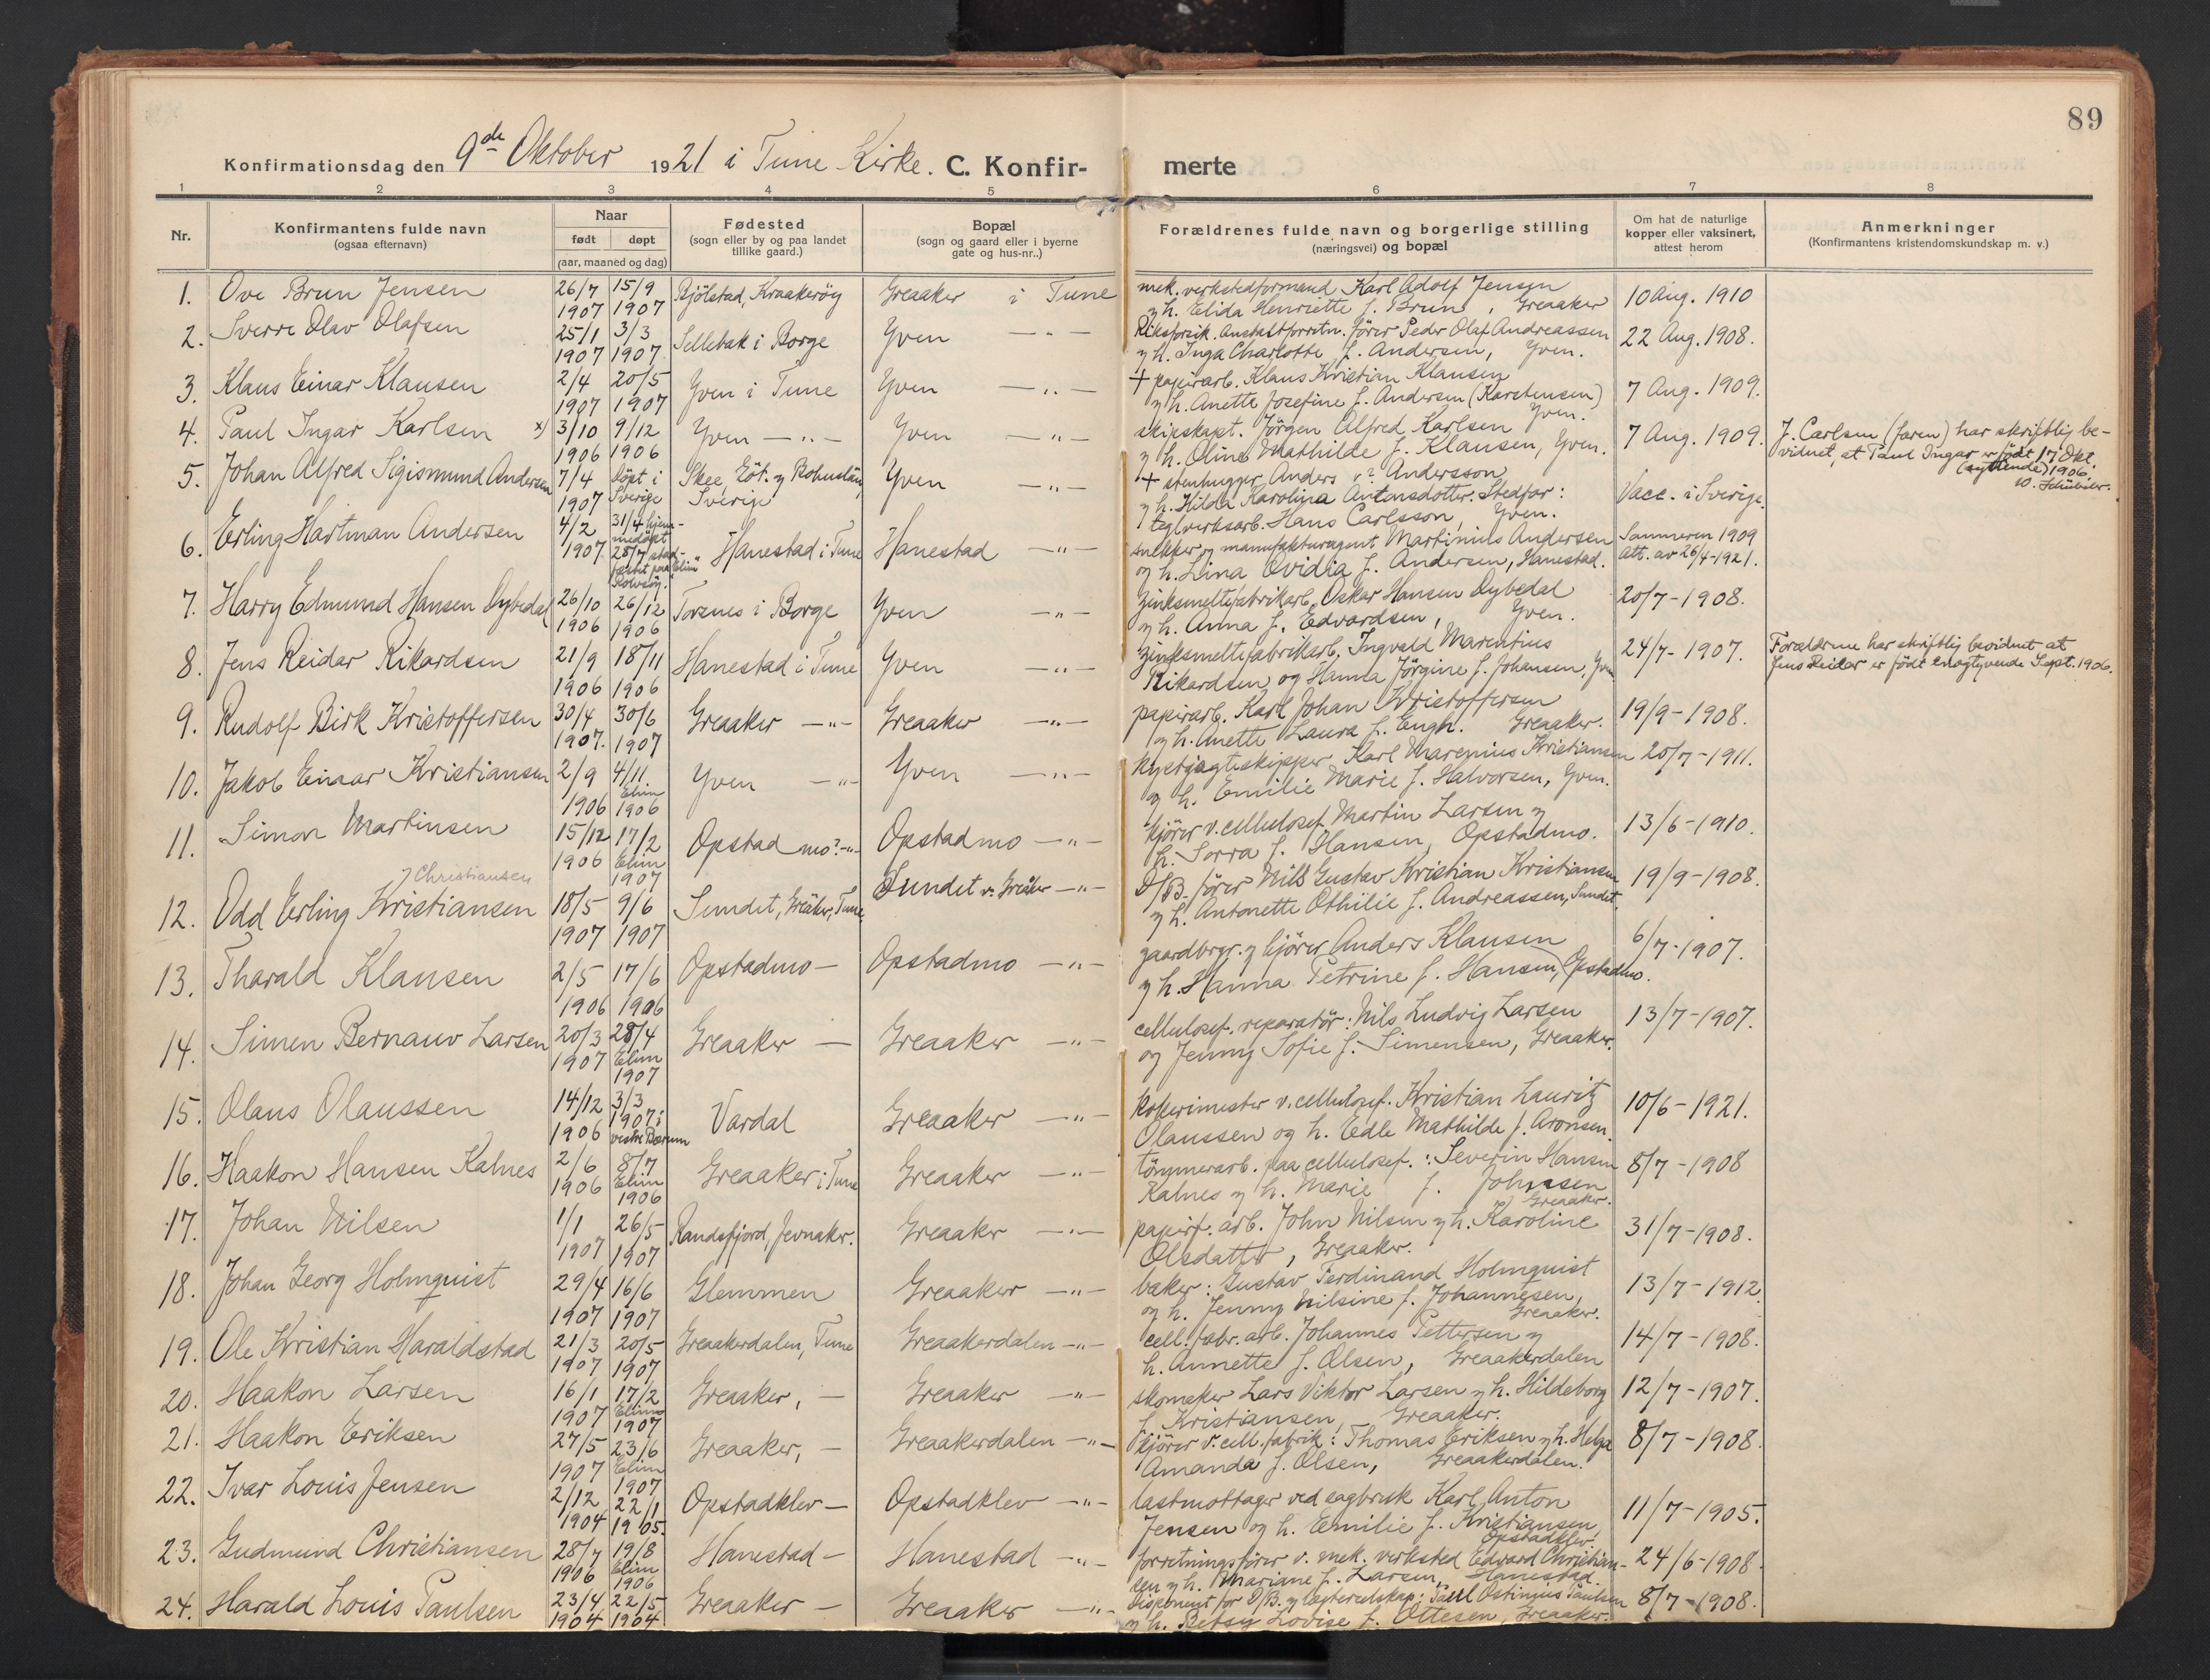 89
Konfirmationsdag den 9de Oktober 1921 i Tune Kirke. C. Konfirmerte
1 2 3 4 5 6 7 8
Nr.
Konfirmantens fulde navn
(ogsaa efternavn)
Naar
født døpt
(aar, maaned og dag)
Fødested
(sogn eller by og paa landet
tillike gaard.)
Bopæl
(sogn og gaard eller i byerne
gate og hus-nr..)
Forældrenes fulde navn og borgerlige stilling
(næringsvei) og bopæl
Om hat de naturlige
kopper eller vaksinert,
attest herom
Anmerkninger
(Konfirmantens kristendomskundskap m. v.)
1. Ove Brun Jensen 26/7 1907 15/9 1907 Bjölstad, Kraakeröy Greaaker i Tune
mek. verkstedformand Karl Adolf Jensen
og h. Elida Henriette f. Brun, Greaaker
10 Aug. 1910
2. Sverre Olav Olafsen 25/1 1907 3/3 1907 Sellebak i Borge Yven —"—
Riksforsik. Anstalt forretn. förer Peder Olaf Andreassen
og h. Inga Charlotte f. Andersen, Yven.
22 Aug. 1908.
3. Klaus Einar Klausen 2/4 1907 20/5 1907 Yven i Tune Yven —"—
+ papirarb. Klaus Kristian Klausen
og h. Anette Josefine f. Andersen (Karstensen) Yven.
7 Aug. 1909.
4. Paul Ingar Karlsen x) 3/10 1906 9/12 1906 Yven —"— Yven —"—
skipskapt. Jörgen Alfred Karlsen
og h. Oline Mathilde f. Klausen, Yven.
7 Aug. 1909.
J. Carlsen (faren) har skriftlig be-
vidnet, at Paul Ingar er födt 17 Okt.
(syttende) 1906.
5. Johan Alfred Sigismund Andersen 7/4 1907 döpt i Sverige Skee, Göt. og Bohuslän, Sverige Yven —"—
+ stenhugger Anders v? Andersson
og h. Hilda Karolina Antonsdotter. Stedfar:
teglverksarb. Hans Carlsson, Yven.
Vacc. i Sverige.
6. Erling Hartman Andersen 4/2 1907 31/4 hjem-
medöpt
28/7 stad-
fæstet paa "Elim"
Rolvsöy. Hanestad i Tune Hanestad —"—
snekker og manufakturagent Martinius Andersen
og h. Lina Ovidia f. Andersen, Hanestad.
Sommeren 1909
Att. av 26/4-1921.
7. Harry Edmund Hansen Dybedal 26/10 1906 26/12 1906 Torsnes i Borge Yven —"—
Zinksmeltefabrikarb. Oskar Hansen Dybedal
og h. Anna f. Edvardsen, Yven.
20/7-1908.
8. Jens Reidar Rikardsen 21/9 1906 18/11 1906 Hanestad i Tune Yven —"—
Zinksmeltefabrikarb. Ingvald Marentius
Rikardsen og Hanna Jörgine f. Johansen, Yven
24/7-1907.
Forældrene har skriftlig bevidnet at
Jens Reidar er födt enogtyvende Sept. 1906.
9. Rudolf Birk Kristoffersen 30/4 1907. 30/6 1907 Greaaker —"— Greaaker —"—
papirarb. Karl Johan Kristoffersen
og h. Anette Laura f. Engh. Greaaker.
19/9-1908.
10. Jakob Einar Kristiansen 2/9 1906 4/11. Elim 1906 Yven —"— Yven —"—
kystjagtskipper Karl Marenius Kristiansen
og h. Emilie Marie f. Halvorsen, Yven.
20/7-1911.
11. Simon Martinsen 15/12 1906 17/2 Elim 1907 Opstad mo? —"— Opstadmo —"—
kjörer v. cellulosef. Martin Larsen og
h. Sorra f. Hansen, Opstadmo.
13/6-1910.
Christiansen
12. Odd Erling Kristiansen 18/5 1907 9/6 1907 Sundet, Greåker, Tune. Sundet v. Greåker —"—
D/B. förer Nils Gustav Kristian Kristiansen
og h. Antonette Othilie f. Andreassen, Sundet.
19/9-1908.
13. Tharald Klausen 2/5 1906 17/6 1906 Opstadmo — Opstadmo —"—
gaardbrgr. og kjörer Anders Klausen
og h. Hanna Petrine f. Hansen, Opstadmo.
6/7-1907.
14. Simen Bernauv Larsen 20/3 1907 28/4 Elim 1907 Greaaker — Greaaker —"—
cellulosef. reparatör: Nils Ludvig Larsen
og Jenny Sofie f. Simensen, Greaaker.
13/7-1907.
15. Olaus Olaussen 14/12 1906 3/3 1907 i vestre Bærum Vardal Greaaker —"—
kokerimester v. cellulosef. Kristian Lauritz
Olaussen og h. Edle Mathilde f. Aronsen.
10/6-1921.
16. Haakon Hansen Kalnes 2/6 1906 8/7 Elim 1906 Greaaker i Tune Greaaker —"—
tömmerarb. paa cellulosef.: Severin Hansen
Kalnes og h. Marie f. Johnssen
Greaaker.
8/7-1908
17. Johan Nilsen 1/1 1907 26/5 1907 Randsfjord, Jevnaker. Greaaker —"—
papirf. arb. John Nilsen og h. Karoline
Olsdatter, Greaaker.
31/7-1908.
18. Johan Georg Holmquist 29/4 1907 16/6 1907 Glemmen Greaaker —"—
baker: Gustav Ferdinand Holmquist
og h. Jenny Nilsine f. Johannesen,
Greaaker.
13/7-1912
19. Ole Kristian Haraldstad 21/3 1907 20/5 1907 Greaakerdalen, Tune Greaakerdalen —"—
cell. fabr. arb. Johannes Pettersen og
h. Annette f. Olsen, Greaakerdalen
14/7-1908.
20. Haakon Larsen 16/1 1907 17/2 Elim 1907 Greaaker, — Greaaker —"—
skomaker Lars Viktor Larsen og h. Hildeborg
f. Kristiansen, Greaaker.
12/7-1907.
21. Haakon Eriksen 27/5 1907 23/6 Elim 1907 Greaaker, — Greaakerdalen —"—
kjörer v. cell. fabrik: Thomas Eriksen og h. Helga
Amanda f. Olsen, Greaakerdalen.
8/7-1908.
22. Ivar Louis Jensen 2/12 1904 22/1 1905. Opstadklev — Opstadklev —"—
lastmottager ved sagbruk Karl Anton
Jensen og h. Emilie f. Kristiansen,
Opstadklev.
11/7-1905.
23. Gudmund Christiansen 28/7 1906 19/8 Elim 1906 Hanestad — Hanestad —"—
forretningsförer v. mek. verksted Edvard Christian-
sen og h. Mariane f. Larsen, Hanestad.
24/6-1908.
24. Harald Louis Paulsen 23/4 1904 22/5 1904 Greaaker — Greaaker —"—
Disponent for D/B. og lægteredskap: Paul Ostinius Paulsen
og h. Betsy Lovise f. Ottesen, Greaaker.
8/7-1908.